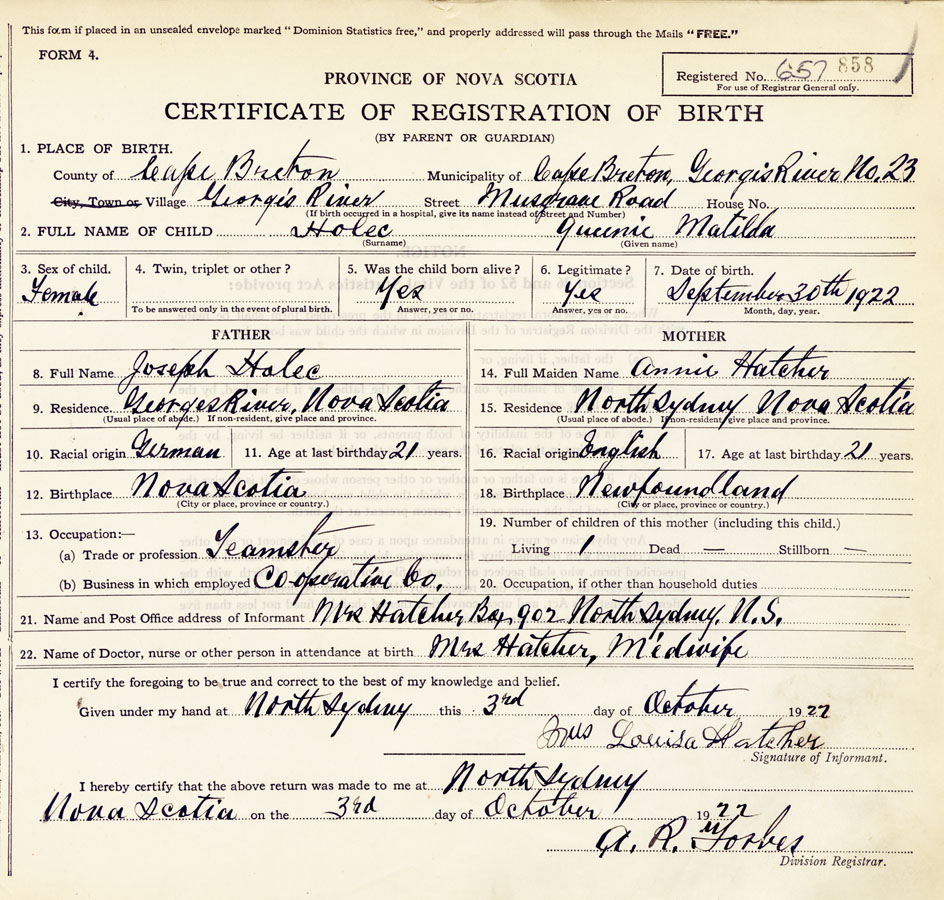 This form if placed in an unsealed envelope marked "Dominion Statistics free," and properly addressed will pass through the Mails "FREE."
FORM 4.
Registered No. 657 858
For use of Registrar General only.
PROVINCE OF NOVA SCOTIA
CERTIFICATE OF REGISTRATION OF BIRTH
(BY PARENT OR GUARDIAN)
1. PLACE OF BIRTH.
County of Cape Breton Municipality of Cape Breton, Georgis River No. 23
City, Town or Village Georgis River Street Musgrave Road House No.
(If birth occurred in a hospital, give its name instead of Street and Number)
2. FULL NAME OF CHILD Holec Queenie Matilda
(Surname) (Given name)
3. Sex of child. 4. Twin, triplet or other? 5. Was the child born alive? 6. Legitimate? 7. Date of birth.
Female Yes Yes September 30th 1922
To be answered only in the event of plural birth. Answer, yes or no. Answer, yes or no. Month, day, year.
FATHER MOTHER
8. Full Name Joseph Holec 14. Full Maiden Name Annie Hatcher
9. Residence. Georges River, Nova Scotia 15. Residence North Sydney Nova Scotia
(Usual place of abode.) If non-resident, give place and province. (Usual place of abode.) If non-resident, give place and province.
10. Racial origin German 11. Age at last birthday 21 years. 16. Racial origin English 17. Age at last birthday 21 years.
12. Birthplace Nova Scotia 18. Birthplace Newfoundland
(City or place, province or country.) (City or place, province or country.)
13. Occupation:— 19. Number of children of this mother (including this child.)
(a) Trade or profession Teamster Living 1 Dead — Stillborn —
(b) Business in which employed Co-operative Co. 20. Occupation, if other than household duties
21. Name and Post Office address of Informant Mrs Hatcher Box 902 North Sydney. N.S.
22. Name of Doctor, nurse or other person in attendance at birth Mrs Hatcher, Medwife
I certify the foregoing to be true and correct to the best of my knowledge and belief.
Given under my hand at North Sydney this 3rd day of October 1922
Mrs Louisa Hatcher
Signature of Informant.
I hereby certify that the above return was made to me at North Sydney
Nova Scotia on the 3rd day of October 1922
A. R. Forbes
Division Registrar.